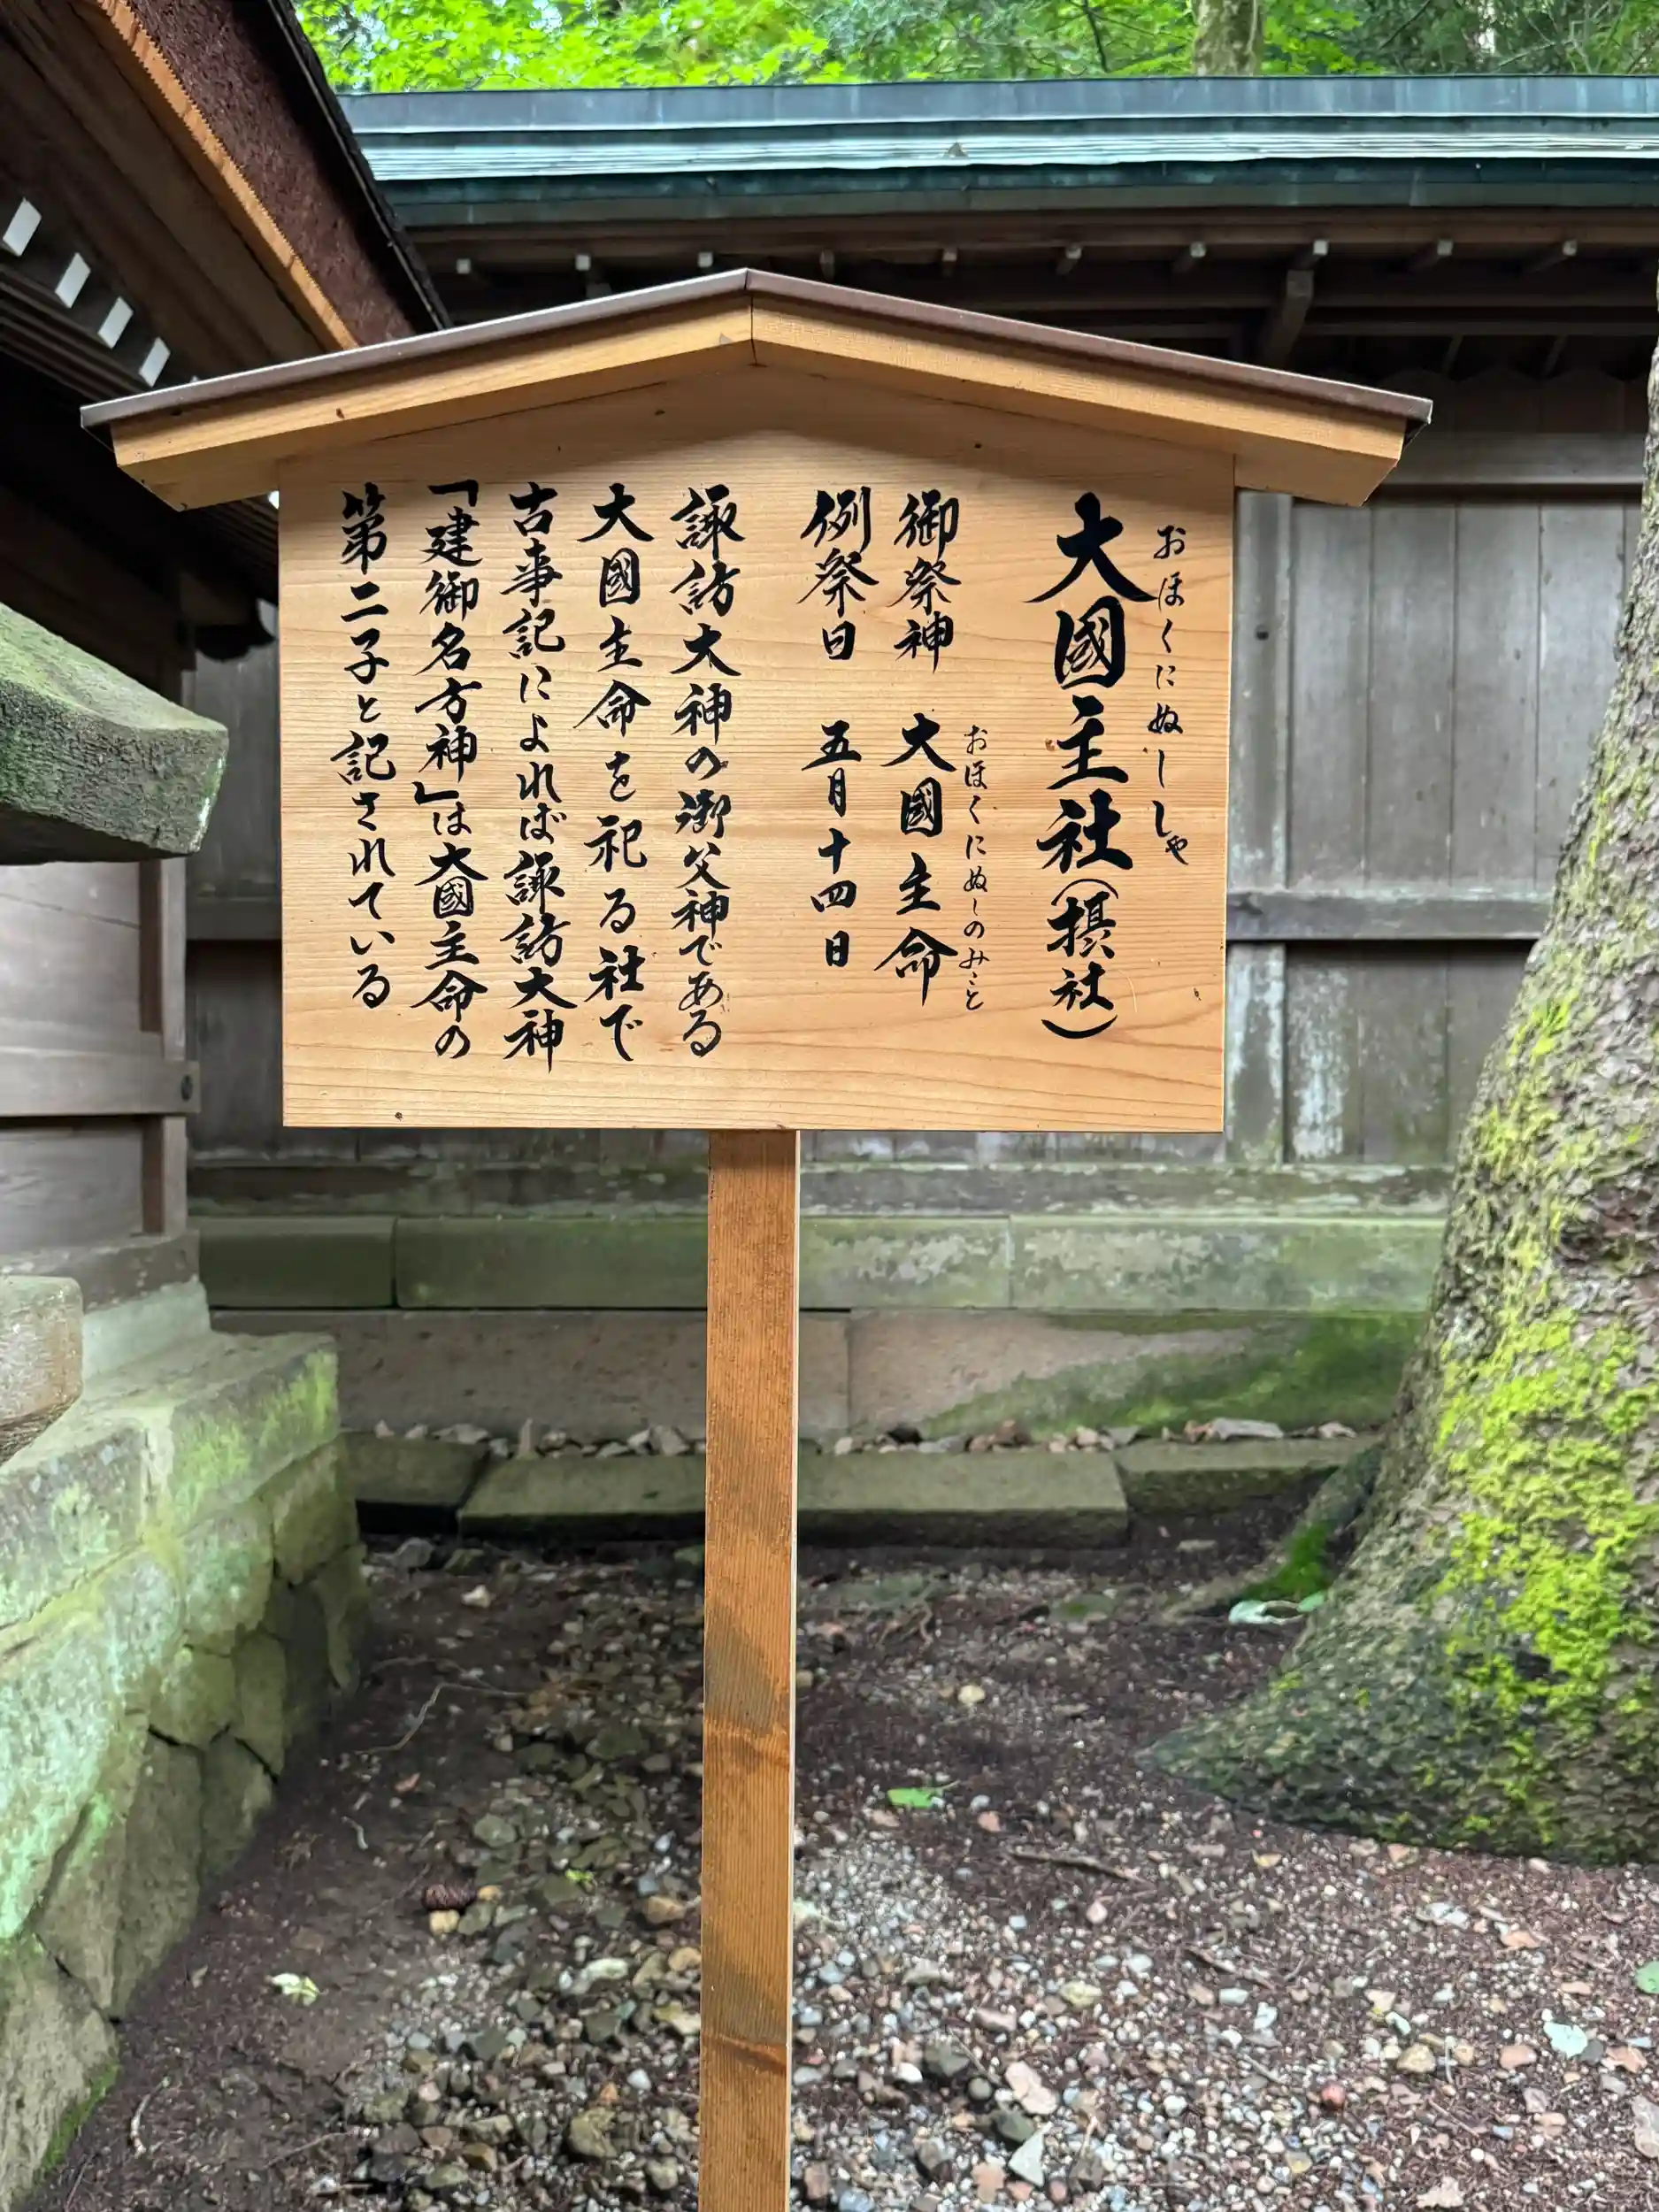 おほくにぬししや
大國主社(摂社)
おほくにぬしのみこと
御祭神 大國主命
例祭日 五月十四日
諏訪大神の御父神である
大國主命を祀る社で
古事記によれば諏訪大神
「建御名方神」は大國主命の
第二子と記されている